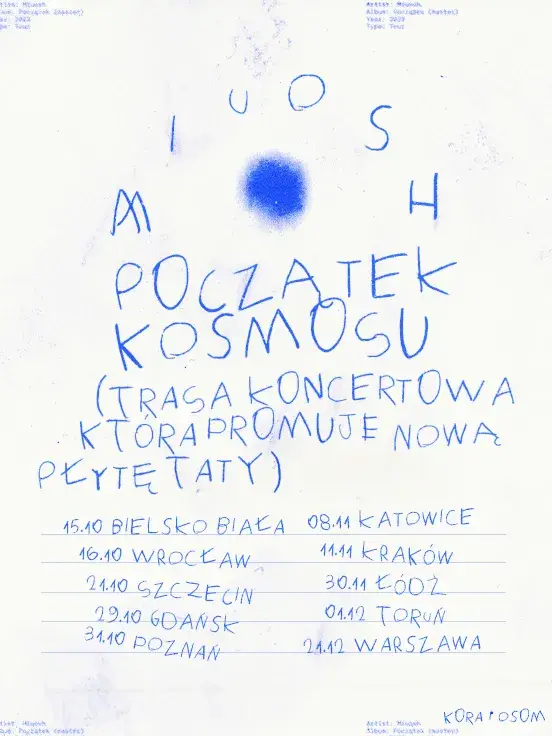 Artist: Miuosh
Album: Początek (master)
Year: 2023
Type: Tour
MIUOSH
POCZĄTEK
KOSMOSU
(TRASA KONCERTOWA
KTÓRA PROMUJE NOWĄ
PŁYTĘ TATY)
15.10 BIELSKO BIAŁA
08.11 KATOWICE
16.10 WROCŁAW
11.11 KRAKÓW
21.10 SZCZECIN
30.11 ŁÓDŹ
29.10 GDAŃSK
01.12 TORUŃ
31.10 POZNAŃ
21.12 WARSZAWA
KORA I OSOM
Artist: Miuosh
Album: Początek (master)